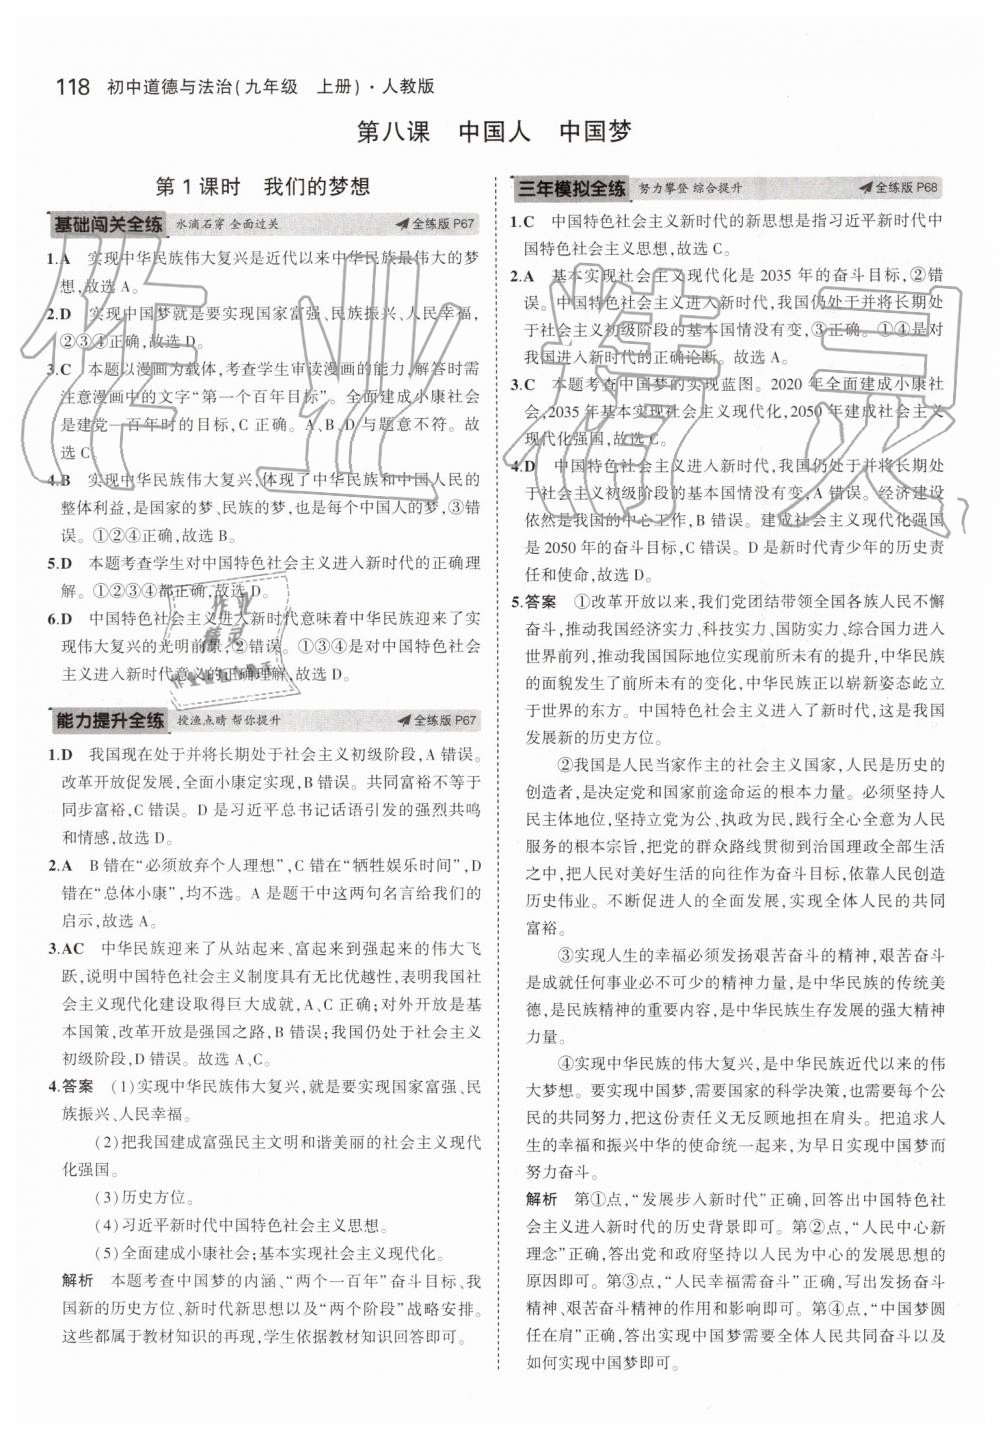 118 初中道德与法治(九年级 上册)·人教版
第八课 中国人 中国梦
第1课时 我们的梦想
基础闯关全练 水滴石穿 全面过关 全练版 P67
1.A 实现中华民族伟大复兴是近代以来中华民族最伟大的梦
想,故选A。
2.D 实现中国梦就是要实现国家富强、民族振兴、人民幸福,
②③④正确,故选D。
3.C 本题以漫画为载体,考查学生审读漫画的能力,解答时需
注意漫画中的文字“第一个百年目标”。全面建成小康社会
是建党一百年时的目标,C正确。A、B、D与题意不符。故
选C。
4.B 实现中华民族伟大复兴,体现了中华民族和中国人民的
整体利益,是国家的梦、民族的梦,也是每个中国人的梦,③错
误。①②④正确,故选B。
5.D 本题考查学生对中国特色社会主义进入新时代的正确理
解。①②③④都正确,故选D。
6.D 中国特色社会主义进入新时代意味着中华民族迎来了实
现伟大复兴的光明前景,②错误。①③④是对中国特色社会
主义进入新时代意义的正确理解,故选D。
能力提升全练 授渔点睛 帮你提升 全练版 P67
1.D 我国现在处于并将长期处于社会主义初级阶段,A错误。
改革开放促发展,全面小康定实现,B错误。共同富裕不等于
同步富裕,C错误。D是习近平总书记话语引发的强烈共鸣
和情感,故选D。
2.A B错在“必须放弃个人理想”,C错在“牺牲娱乐时间”,D
错在“总体小康”,均不选。A是题干中这两句名言给我们的
启示,故选A。
3.AC 中华民族迎来了从站起来、富起来到强起来的伟大飞
跃,说明中国特色社会主义制度具有无比优越性,表明我国社
会主义现代化建设取得巨大成就,A、C正确;对外开放是基
本国策,改革开放是强国之路,B错误;我国仍处于社会主义
初级阶段,D错误。故选A、C。
4.答案 (1)实现中华民族伟大复兴,就是要实现国家富强、民
族振兴、人民幸福。
(2)把我国建成富强民主文明和谐美丽的社会主义现代
化强国。
(3)历史方位。
(4)习近平新时代中国特色社会主义思想。
(5)全面建成小康社会;基本实现社会主义现代化。
解析 本题考查中国梦的内涵、“两个一百年”奋斗目标、我
国新的历史方位、新时代新思想以及“两个阶段”战略安排。
这些都属于教材知识的再现,学生依据教材知识回答即可。
三年模拟全练 努力攀登 综合提升 全练版 P68
1.C 中国特色社会主义新时代的新思想是指习近平新时代中
国特色社会主义思想,故选C。
2.A 基本实现社会主义现代化是2035年的奋斗目标,②错
误。中国特色社会主义进入新时代,我国仍处于并将长期处
于社会主义初级阶段的基本国情没有变,③正确。①④是对
我国进入新时代的正确论断。故选A。
3.C 本题考查中国梦的实现蓝图。2020年全面建成小康社
会,2035年基本实现社会主义现代化,2050年建成社会主义
现代化强国,故选C。
4.D 中国特色社会主义进入新时代,我国仍处于并将长期处
于社会主义初级阶段的基本国情没有变,A错误。经济建设
依然是我国的中心工作,B错误。建成社会主义现代化强国
是2050年的奋斗目标,C错误。D是新时代青少年的历史责
任和使命,故选D。
5.答案 ①改革开放以来,我们党团结带领全国各族人民不懈
奋斗,推动我国经济实力、科技实力、国防实力、综合国力进入
世界前列,推动我国国际地位实现前所未有的提升,中华民族
的面貌发生了前所未有的变化,中华民族正以崭新姿态屹立
于世界的东方。中国特色社会主义进入了新时代,这是我国
发展新的历史方位。
②我国是人民当家作主的社会主义国家,人民是历史的
创造者,是决定党和国家前途命运的根本力量。必须坚持人
民主体地位,坚持立党为公、执政为民,践行全心全意为人民
服务的根本宗旨,把党的群众路线贯彻到治国理政全部活动
之中,把人民对美好生活的向往作为奋斗目标,依靠人民创造
历史伟业。不断促进人的全面发展,实现全体人民的共同
富裕。
③实现人生的幸福必须发扬艰苦奋斗的精神,艰苦奋斗
是成就任何事业必不可少的精神力量,是中华民族的传统美
德,是民族精神的重要内容,是中华民族生存发展的强大精神
力量。
④实现中华民族的伟大复兴,是中华民族近代以来的伟
大梦想。要实现中国梦,需要国家的科学决策,也需要每个公
民的共同努力,把这份责任义无反顾地担在肩头。把追求人
生的幸福和振兴中华的使命统一起来,为早日实现中国梦而
努力奋斗。
解析 第①点,“发展步入新时代”正确,回答出中国特色社
会主义进入新时代的历史背景即可。第②点,“人民中心新
理念”正确,答出党和政府坚持以人民为中心的发展思想的
原因即可。第③点,“人民幸福需奋斗”正确,写出发扬奋斗
精神、艰苦奋斗精神的作用和影响即可。第④点,“中国梦圆
任在肩”正确,答出实现中国梦需要全体人民共同奋斗以及
如何实现中国梦即可。
作业精灵
作业
精灵